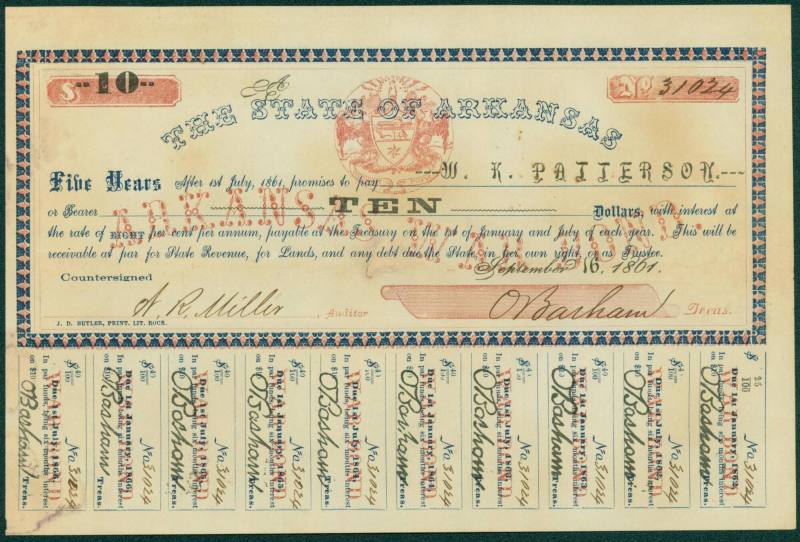 $ --10--
A
No 31024
THE STATE OF ARKANSAS
Five Years After 1st July, 1861, promises to pay ---W. K. PATTERSON.---
or Bearer TEN Dollars, with interest at
the rate of EIGHT per cent per annum, payable at the Treasury on the 1st of January and July of each year. This will be
receivable at par for State Revenue, for Lands, and any debt due the State, in her own right, or as Trustee.
ARKANSAS WAR BOND.
September 16, 1861.
Countersigned
A. R. Miller, Auditor
O Basham Treas.
J. D. BUTLER, PRINT. LIT. ROCK.
$ 40/100 No 31024
Due 1st July, 1866,
In par funds, being six months interest
on $10 O Basham Treas.
$ 40/100 No 31024
Due 1st January, 1866,
In par funds, being six months interest
on $10 O Basham Treas.
$ 40/100 No 31024
Due 1st July, 1865,
In par funds, being six months interest
on $10 O Basham Treas.
$ 40/100 No 31024
Due 1st January, 1865,
In par funds, being six months interest
on $10 O Basham Treas.
$ 40/100 No 31024
Due 1st July, 1864,
In par funds, being six months interest
on $10 O Basham Treas.
$ 40/100 No 31024
Due 1st January, 1864,
In par funds, being six months interest
on $10 O Basham Treas.
$ No 31024
Due 1st July, 1863,
In par funds, being six months interest
on $10 O Basham Treas.
$ 40/100 No 31024
Due 1st January, 1863,
In par funds, being six months interest
on $10 O Basham Treas.
$ No 31024
Due 1st July, 1862,
In par funds, being six months interest
on $10 O Basham Treas.
$ 25/100 No 31024
Due 1st January, 1862,
In par funds, being six months interest
on $10 O Basham Treas.